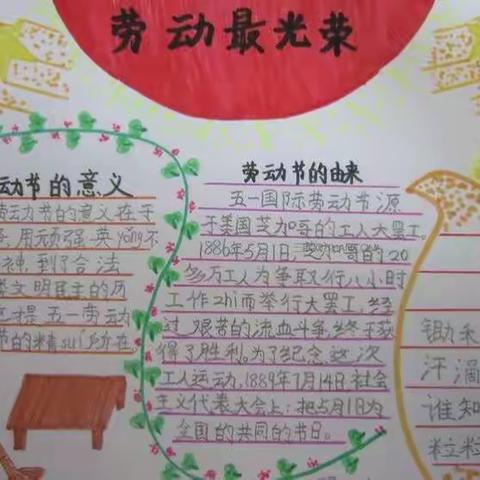 劳动最光荣
动节的意义
劳动节的意义在于
用顽强、英yǒng不
神,到了合法
类文明民主的历
这才是五一劳动
节的精suǐ所在。
劳动节的由来
五一国际劳动节源
于美国芝加哥的工人大罢工。
1886年5月1日,芝加哥的20
多万工人为争取八小时
工作zhì而举行大罢工,经
过艰苦的流血斗争,终于获
得了胜利。为了纪念这次
工人运动,1889年7月14日社会
主义代表大会上:把5月1日为
全国的共同的节日。
锄禾
汗滴
谁知
粒粒